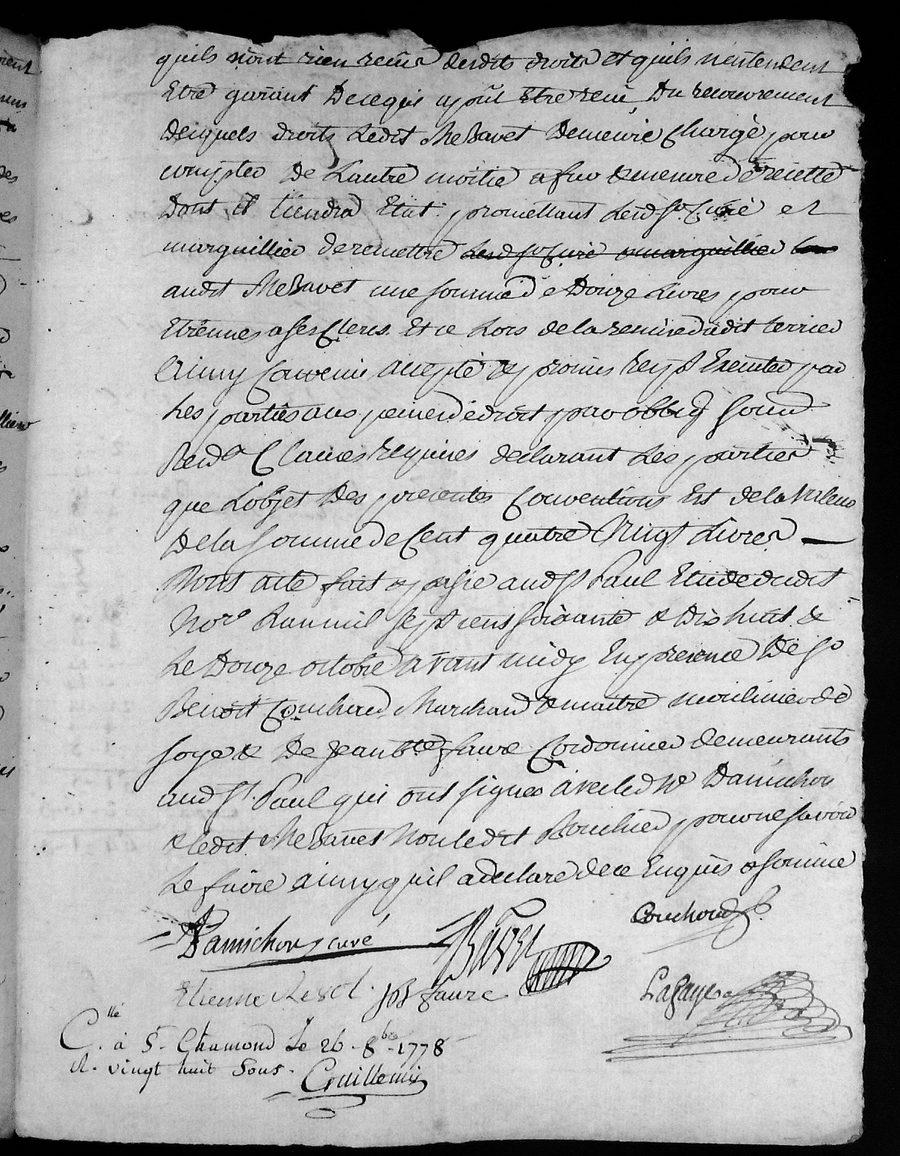 quils n'ont rien recu desdits droits et quils n'entendent
Etre garant De ce qui a pû Etre recu Du recouvrement
Desquels droits Ledit Me Bavet Demeure Chargé, pour
compter De Lautre moitié a fur & mesure de recette
Dont il tiendra Etat. promettant Lesd Sr Curé et
marguillier de remettre Lesd Sr Curé & marguillier
audit Me Bavet une somme de Douze Livres pour
Etrennes a ses Clercs. Et ce Lors de la remise dudit terrier
Ainsy convenu accepté & promis Executer par
Les parties aux peines de droit par oblig Soum
Rend & Clauses requises declarant Les parties
que L'objet Des presentes Conventions Est de la valeur
De la Somme de Cent quatre Vingt Livres
Dont acte fait & passé aud St Paul Etude dudit
Nore Lan mil sept cens soixante & dix huit &
Le Douze octobre avant midy En presence De Sr
Benoit Couchoud Marchand & maitre moulinier de
soye & De Jean Bte faure Cordonnier demeurants
aud St Paul qui ont signés avec led Mr Damichon
& ledit Me Bavet Non ledit Bouchier pour ne savoir
Le faire ainsy quil a declaré de ce Enquis & sommé
Damichon curé Bavet Couchoud
Etienne JB faure Lafaye
Clle à St. Chamond Le 26. 8bre 1778
R. vingt huit Sous.